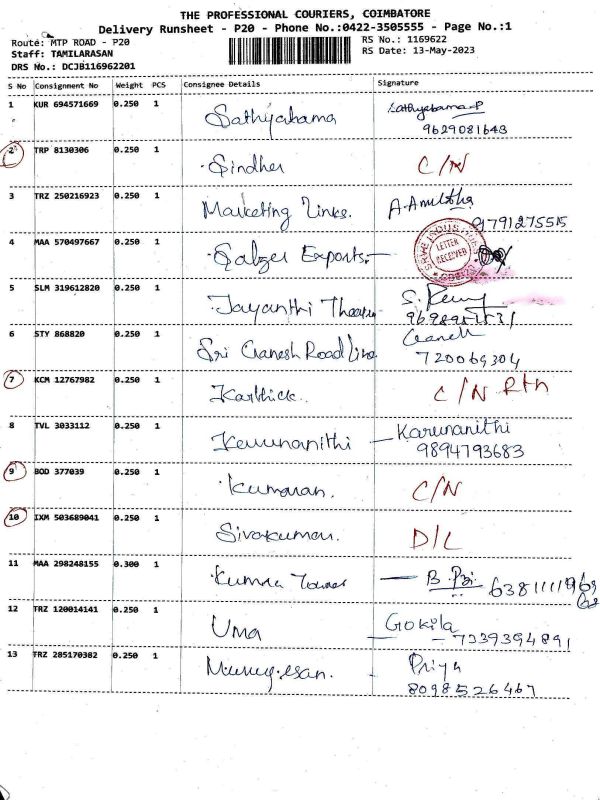 THE PROFESSIONAL COURIERS, COIMBATORE
Delivery Runsheet - P20 - Phone No.:0422-3505555 - Page No.:1
Route: MTP ROAD - P20
RS No.: 1169622
Staff: TAMILARASAN
RS Date: 13-May-2023
DRS No.: DCJB116962201
S No Consignment No Weight PCS Consignee Details Signature
1 KUR 694571669 0.250 1 Sathyabama Sathyabama P
9629081643
2 TRP 8130306 0.250 1 Sindhu C/N
3 TRZ 250216923 0.250 1 Marketing Links. A. Amutha
91791275515
4 MAA 570497667 0.250 1 Salzer Exports LETTER
RECEIVED
5 SLM 319612820 0.250 1 Jayanthi S.
6 STY 868820 0.250 1 Sri Ganesh Road Line Ganesh
720069304
7 KCM 12767982 0.250 1 Karthick. C/N Rtn
8 TVL 3033112 0.250 1 Karunanithi - Karunanithi
9894793683
9 BOD 377039 0.250 1 Kumaran. C/N
10 IXM 503689041 0.250 1 Sivakumar. D/L
11 MAA 298248155 0.300 1 Kumra Tower
12 TRZ 120014141 0.250 1 Uma Gokila
- 7339394891
13 TRZ 285170382 0.250 1 Murugesan. - Priya
8098526467